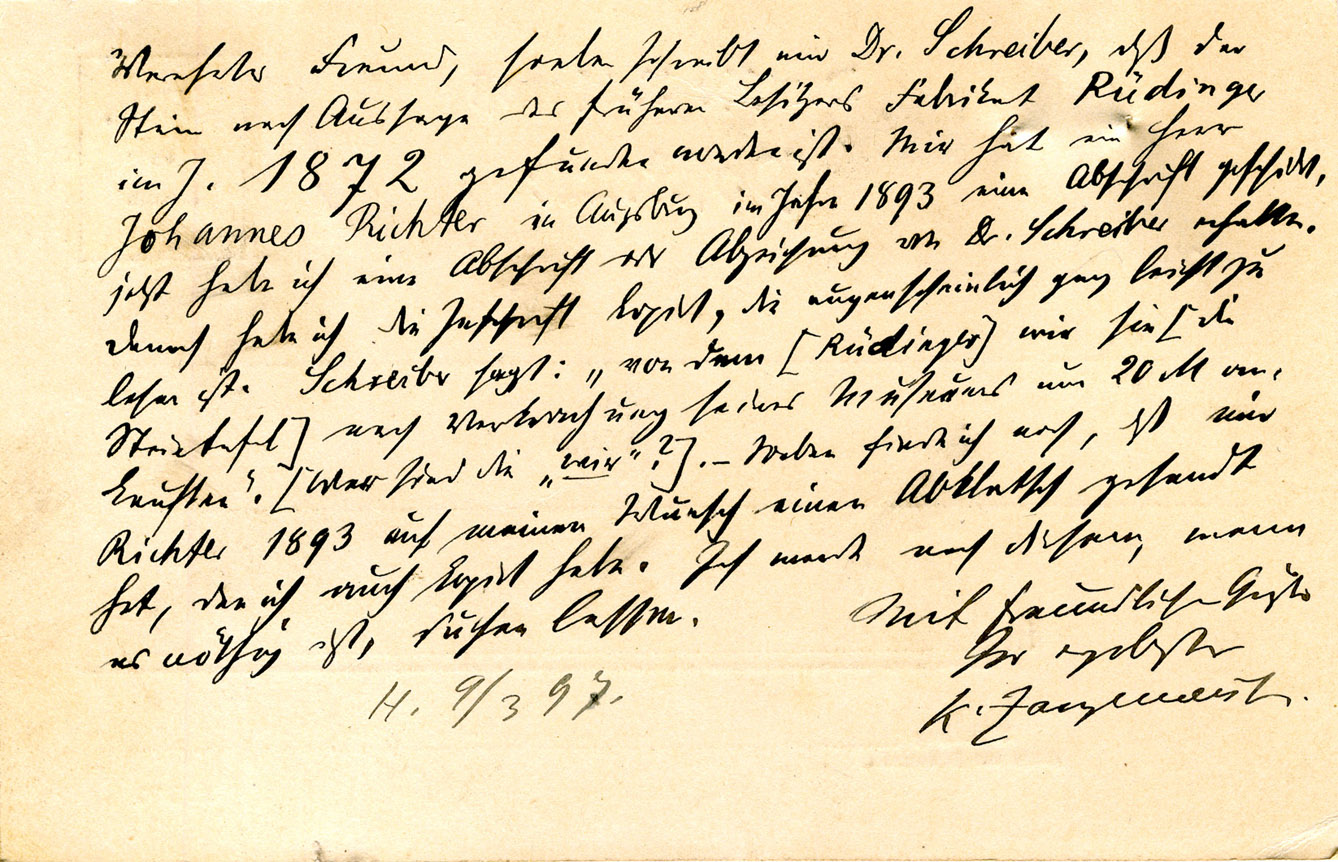 Verehrter Freund, soeben schreibt mir Dr. Schreiber, daß der
Stein nach Aussage des früheren Besitzers Fabrikant Rüdinger
im J. 1872 gefunden worden ist. Mir hat ein Herr
Johannes Richter in Augsburg im Jahre 1893 eine Abschrift geschickt,
jetzt habe ich eine Abschrift oder Abzeichnung von Dr. Schreiber erhalten.
danach habe ich die Inschrift kopiert, die augenscheinlich ganz leicht zu
lesen ist. Schreiber sagt: „von dem [Rüdinger] wir sie [die
Steintafel] nach Verkrachung seines Museums um 20 M an-
kauften“. [Wer sind die „wir“?]. – Soeben finde ich noch, ist mir
Richter 1893 auf meinen Wunsch einen Abklatsch gesandt
hat, den ich auch kopiert habe. Ich werde nach diesem, wenn
es nöthig ist, suchen lassen.
Mit freundlichem Gruße
Ihr ergebenster
K. Zangemeister.
H. 9/3 97.